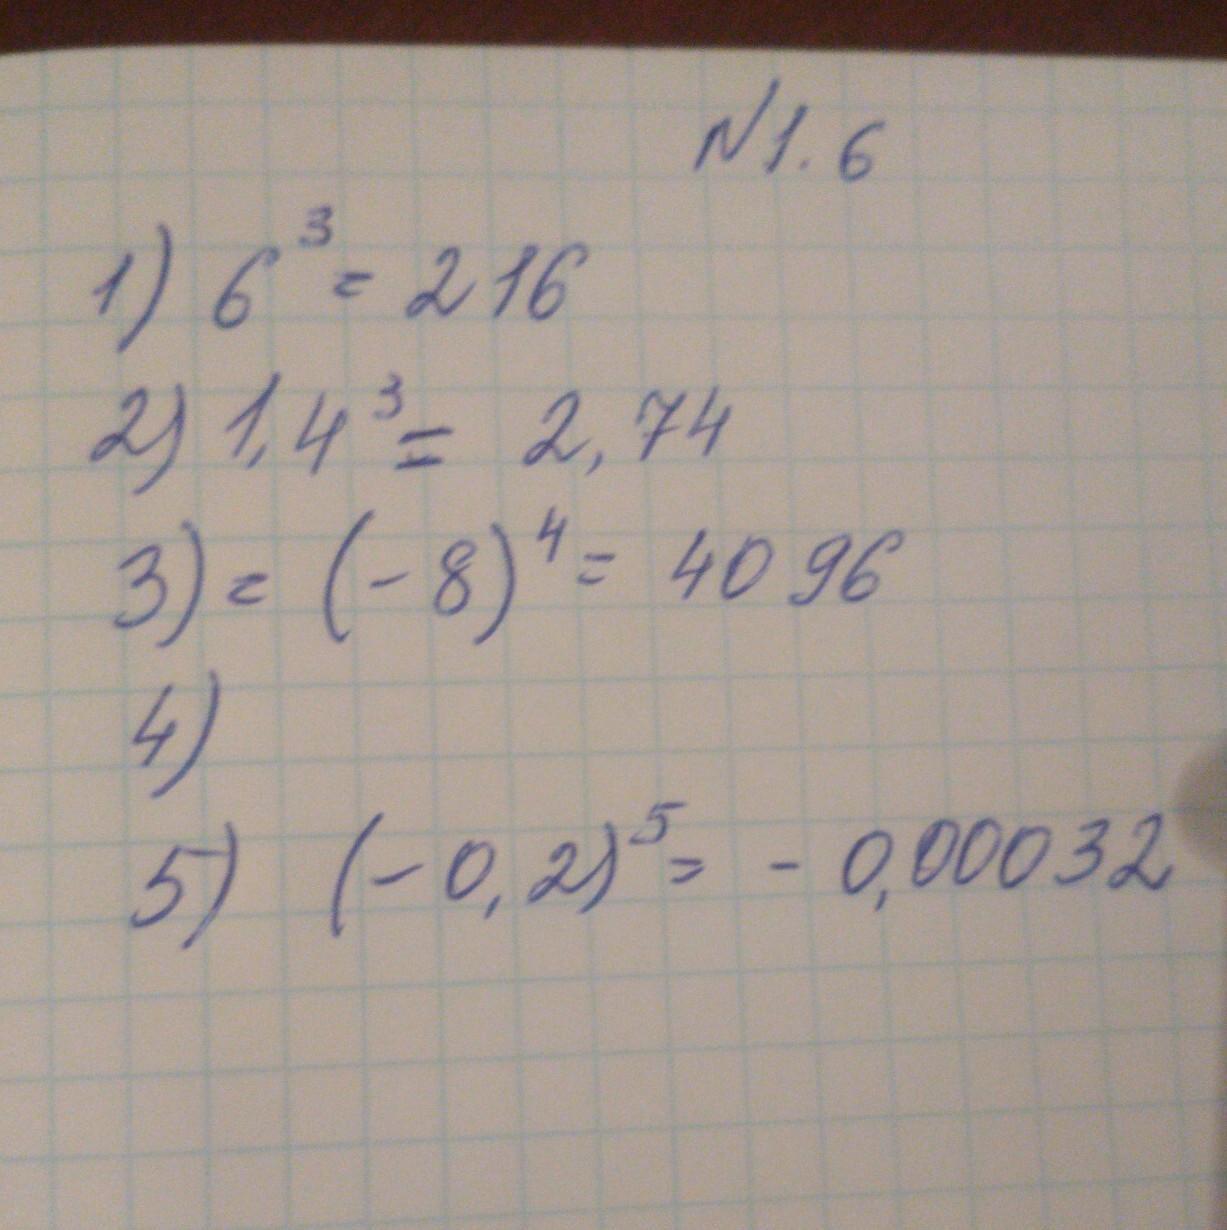 N1.6
1) 6³ = 216
2) 1,4³ = 2,74
3) = (-8)⁴ = 4096
4)
5) (-0,2)⁵ = - 0,00032